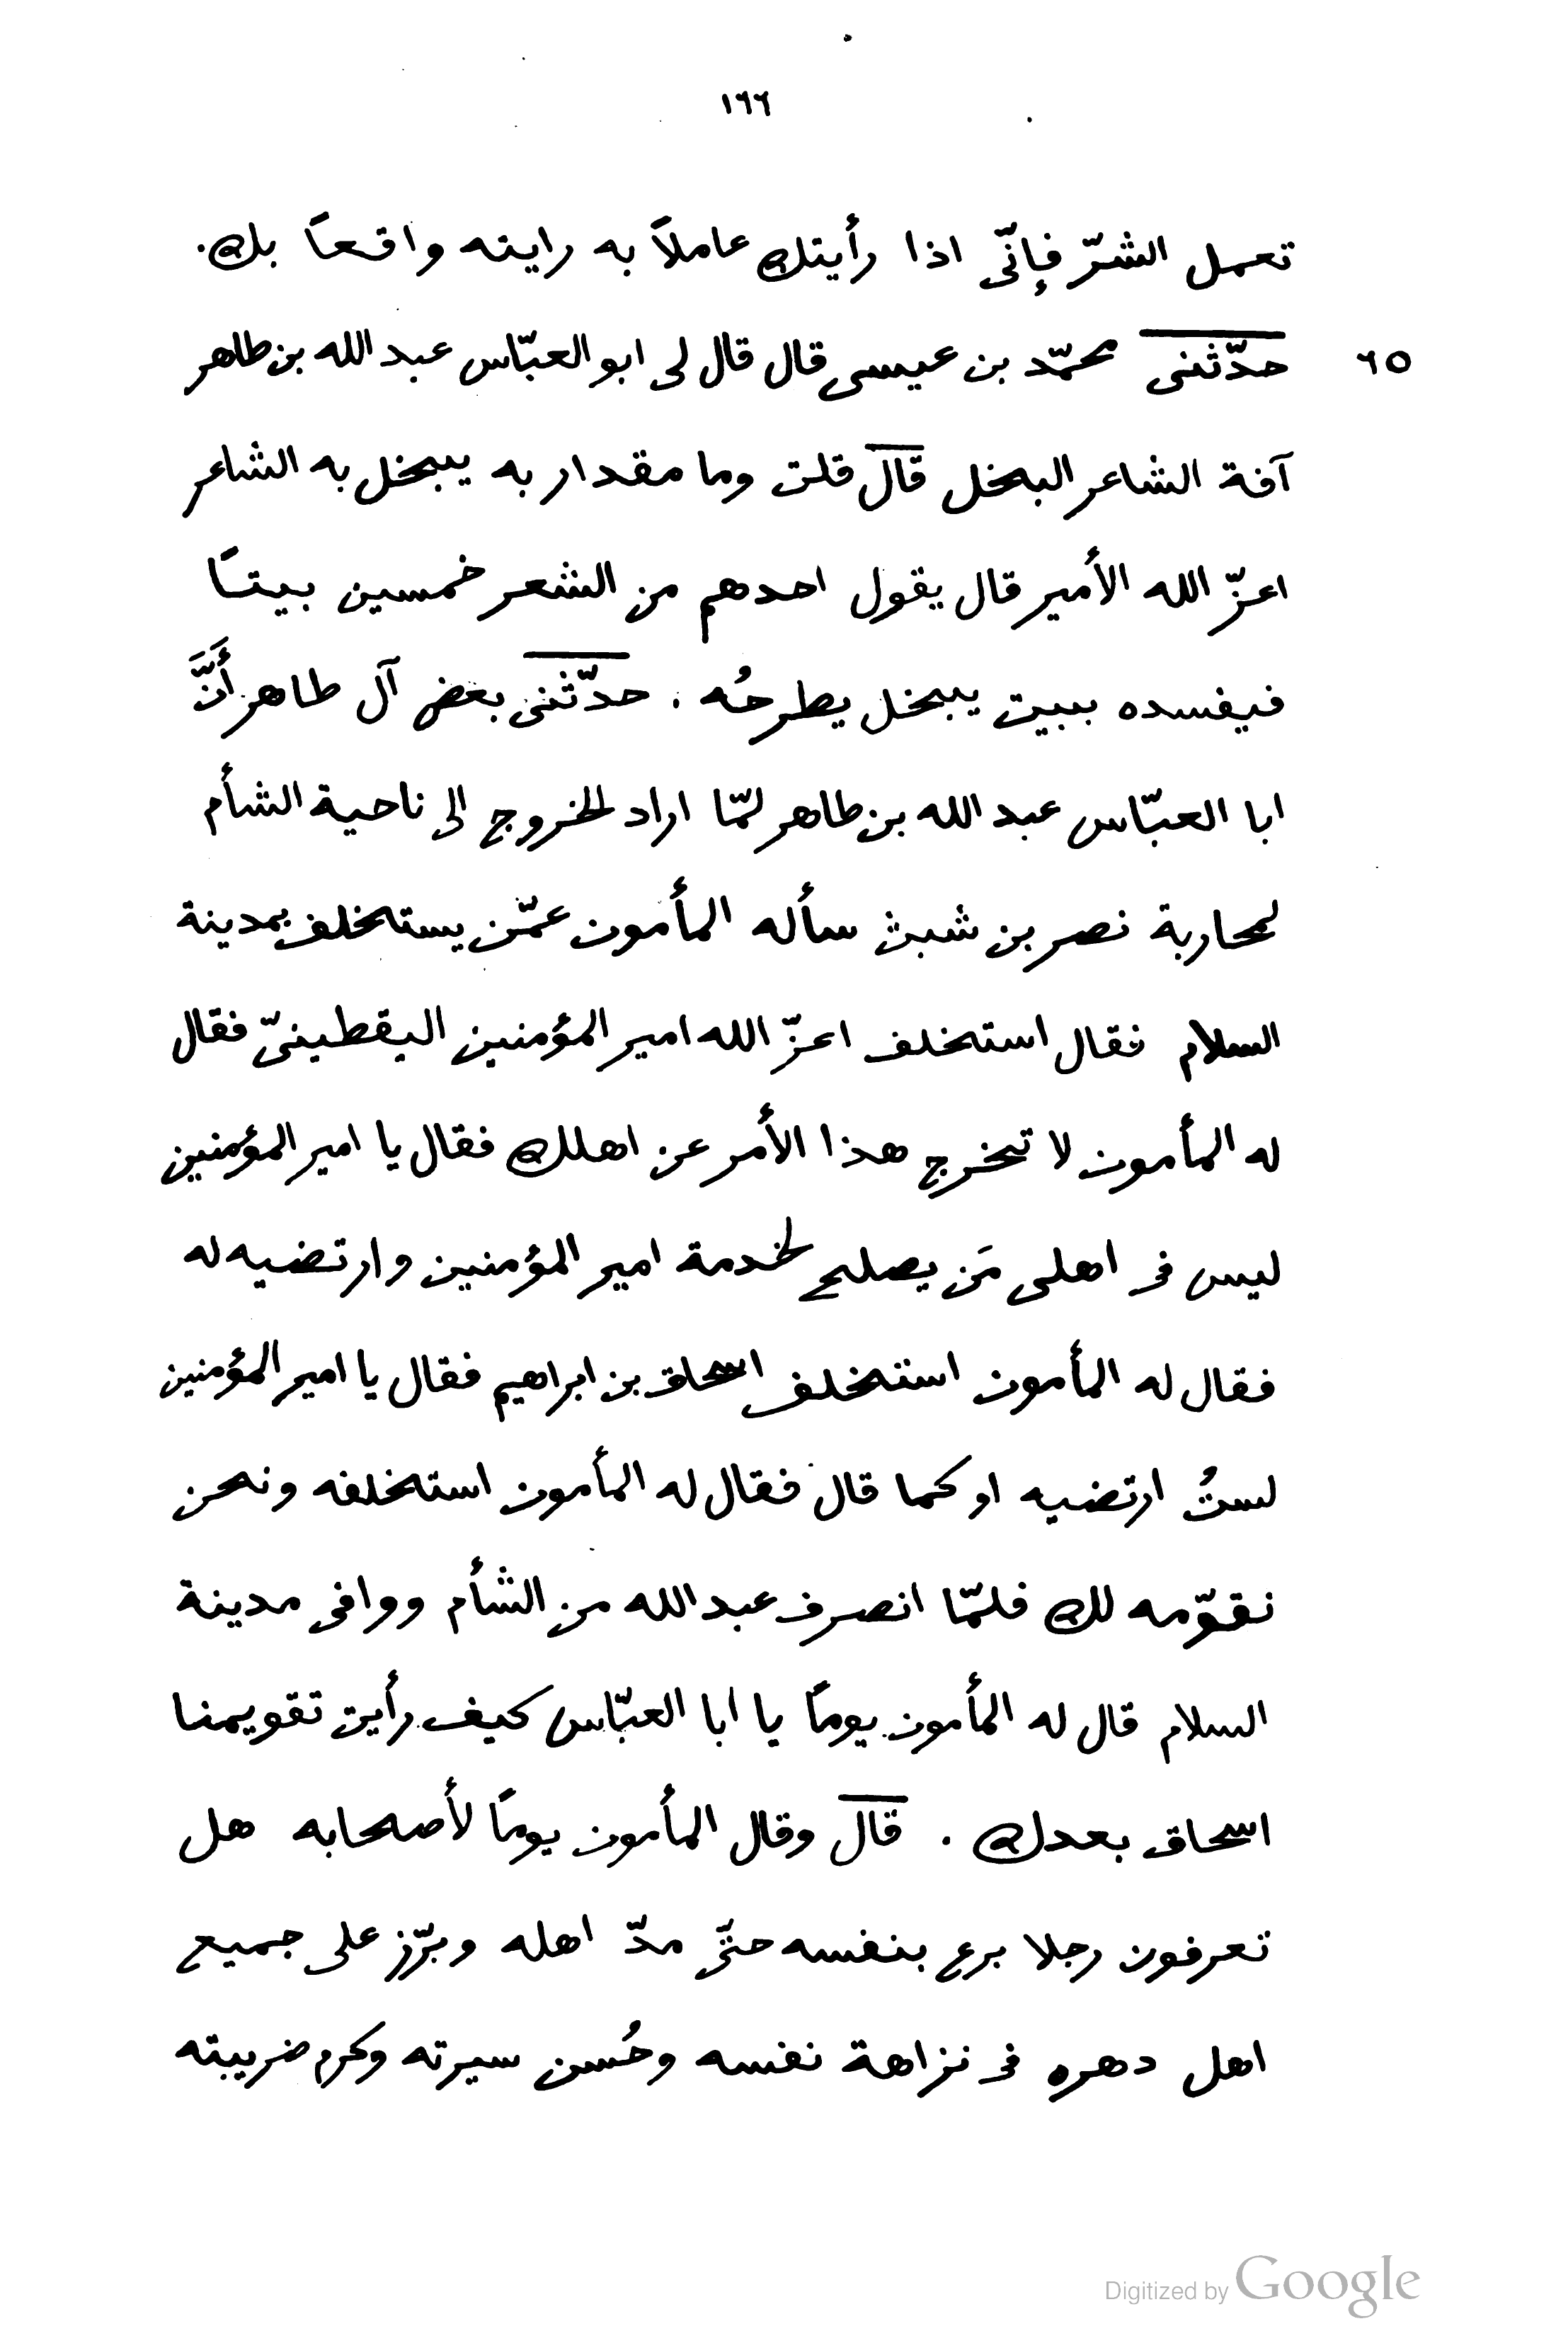 ١٦٦
تعمل الشرّ فإنّى اذا رأيتك عاملاً به رايته واقعاً بك.
٦٥ حدّثنى محمّد بن عيسى قال قال لى ابو العبّاس عبد الله بن طاهر
آفة الشاعر البخل قال قلت وما مقدار به يبخل به الشاعر
اعزّ الله الأمير قال يقول احدهم من الشعر خمسين بيتاً
فيفسده ببيت يبخل يطرحُه . حدّثنى بعض آل طاهر أَنَّ
ابا العبّاس عبد الله بن طاهر لمّا اراد الخروج الى ناحية الشأم
لمحاربة نصر بن شبث سأله المأمون عمّن يستخلف بمدينة
السلام فقال استخلف اعزّ الله امير المؤمنين اليقطينىّ فقال
له المأمون لا تخرج هذا الأمر عن اهلك فقال يا امير المؤمنين
ليس فى اهلى مَن يصلح لخدمة امير المؤمنين وارتضيه له
فقال له المأمون استخلف اسحاق بن ابراهيم فقال يا امير المؤمنين
لستُ ارتضيه او كما قال فقال له المأمون استخلفه ونحن
نقوّمه لك فلمّا انصرف عبد الله من الشأم ووافى مدينة
السلام قال له المأمون يوماً يا ابا العبّاس كيف رأيت تقويمنا
اسحاق بعدك . قال وقال المأمون يوماً لأصحابه هل
تعرفون رجلا برع بنفسه حتّى مدّ اهله وبرّز على جميع
اهل دهره فى نزاهة نفسه وحُسن سيرته وكرم ضريبته
Digitized by Google